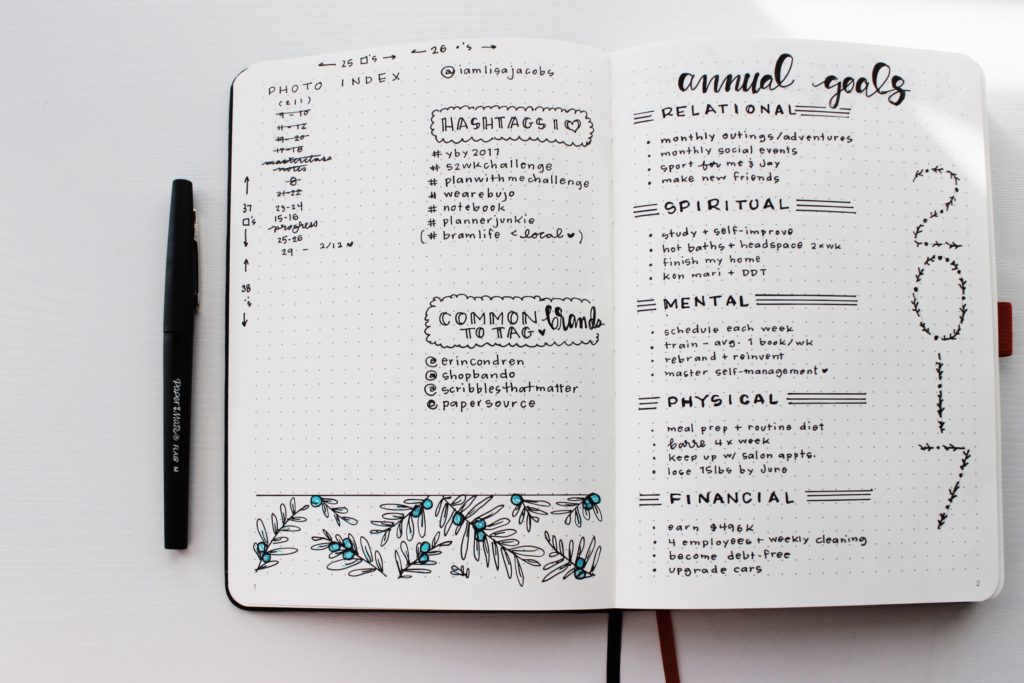 ← 25 □'s →
← 26 •'s →
PHOTO INDEX
(211)
9 - 10
11 - 12
19 - 20
17 - 18
masterclass
notes
8
21-22
23-24
15-16
progress
25-26
29 - 2/12 ♥
↑
37
□'s
↓
↑
38
•'s
↓
@iamlisajacobs
HASHTAGS I ♡
# yby2017
# 52wkchallenge
# planwithmechallenge
# wearebujo
# notebook
# plannerjunkie
(# bramlife < local ♥)
COMMON brands
TO TAG ♥
@ erincondren
@ shopbando
@ scribblesthatmatter
@ papersource
1
annual goals
RELATIONAL
• monthly outings/adventures
• monthly social events
• sport for me & Jay
• make new friends
SPIRITUAL
• study + self-improve
• hot baths + headspace 2xwk
• finish my home
• kon mari + DDT
MENTAL
• schedule each week
• train - avg. 1 book/wk
• rebrand + reinvent
• master self-management ♥
PHYSICAL
• meal prep + routine diet
• barre 4x week
• keep up w/ salon appts.
• lose 15lbs by June
FINANCIAL
• earn $496k
• 4 employees + weekly cleaning
• become debt-free
• upgrade cars
2017
2
Paper:Mate® FLAIR M